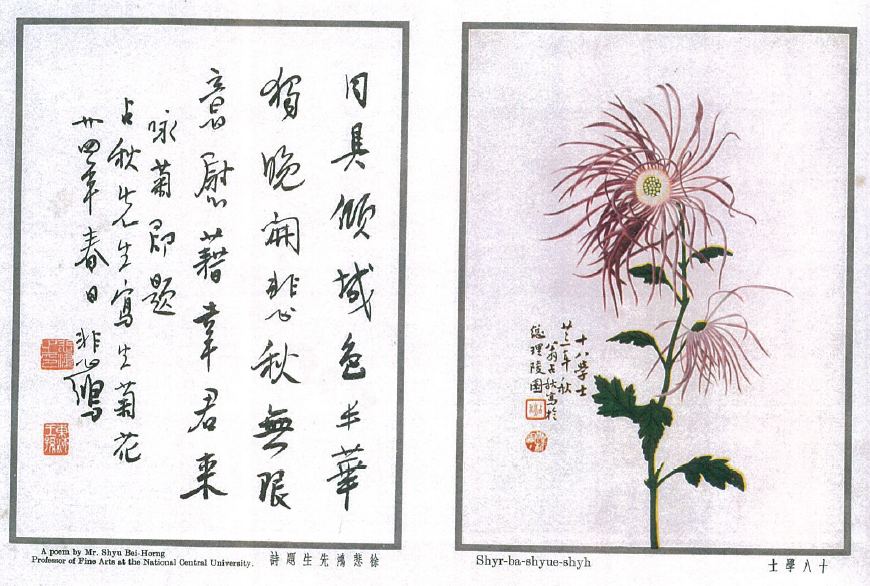 同具傾城色丰華
獨晚開悲秋無限
意慰藉韋君来
咏菊即題
占秋先生寫生菊花
廿四年春日悲鴻
A poem by Mr. Shyu Bei-Horng
Professor of Fine Arts at the National Central University.
徐悲鴻先生題詩
十八學士
年秋
翁占秋寫於
總理陵園
Shyr-ba-shyue-shyh
十八學士